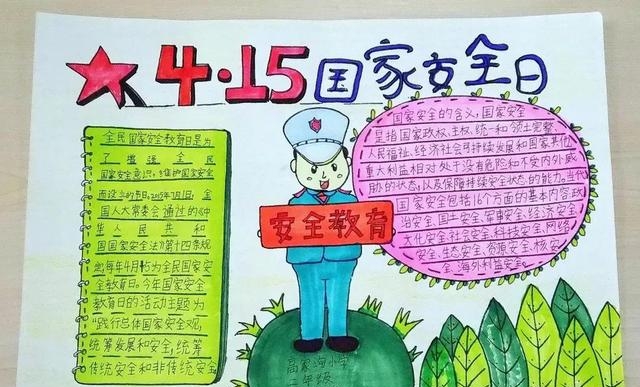 4·15国家安全日
全民国家安全教育日是为
了增强全民
国家安全意识，维护国家安全
而设立的节日。2015年7月1日，全
国人大常委会通过的《中
华人民共和
国国家安全法》第十四条规
定每年4月15为全民国家安
全教育日。今年国家安全
教育日的活动主题为
“践行总体国家安全观，
统筹发展和安全，统筹
传统安全和非传统安全
安全教育
国家安全的含义，国家安全
是指国家政权、主权、统一和领土完整、
人民福祉、经济社会可持续发展和国家其他
重大利益相对处于没有危险和不受内外威
胁的状态，以及保障持续安全状态的能力。当代
国家安全包括16个方面的基本内容：政
治安全、国土安全、军事安全、经济安全、
文化安全、社会安全、科技安全、网络
安全、生态安全、资源安全、核安
全、海外利益安全。
小学
二年级